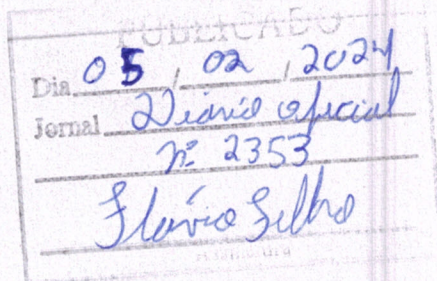 PUBLICADO
Dia 05, 02, 2024
Jornal Diário oficial
Nº 2353
Flávio Filho
Assinatura